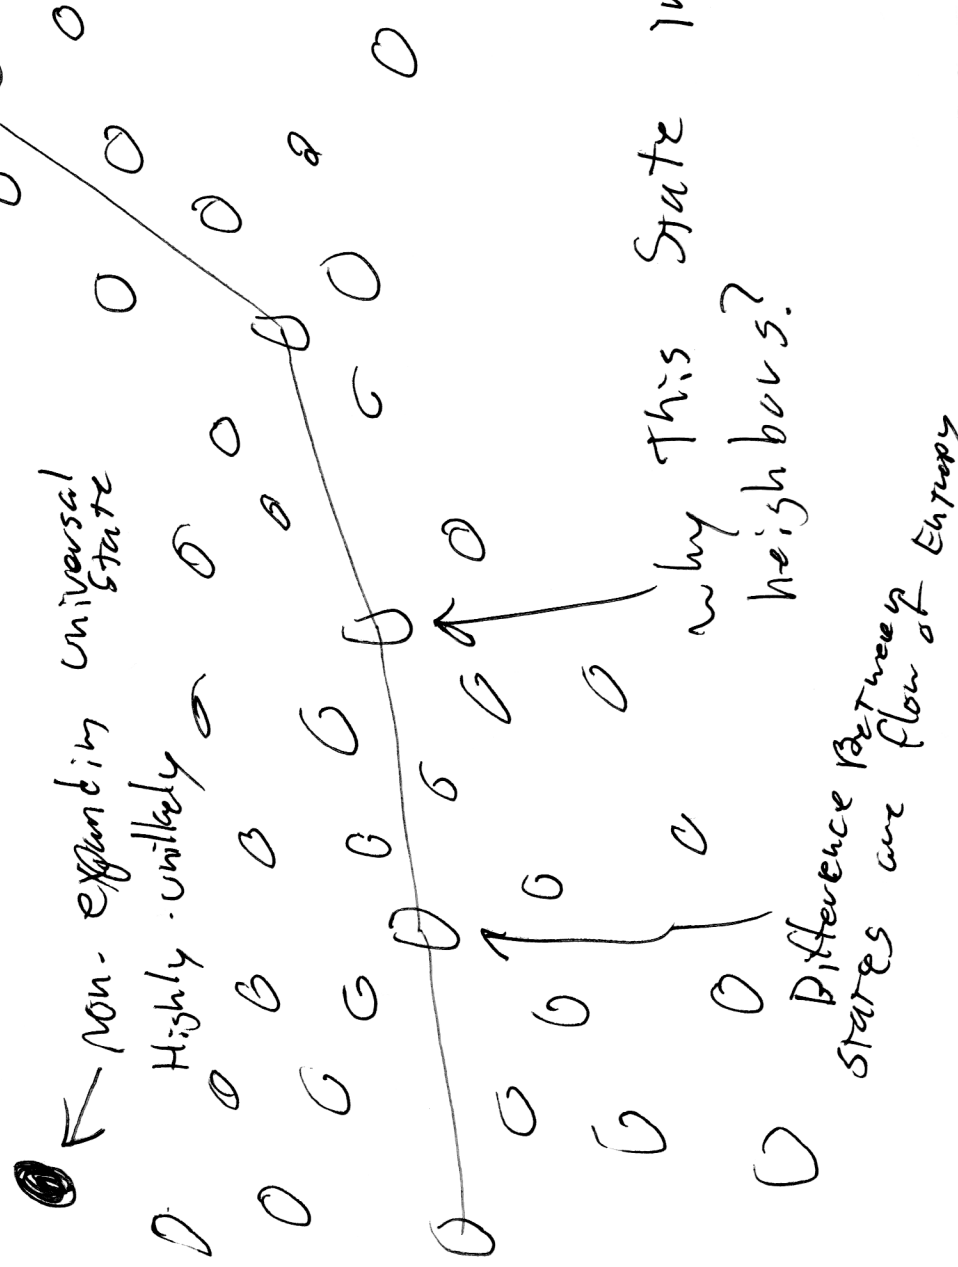 non-expanding universal
State
Highly unlikely
why This State
neighbours?
Difference Between
States are flow of Entropy